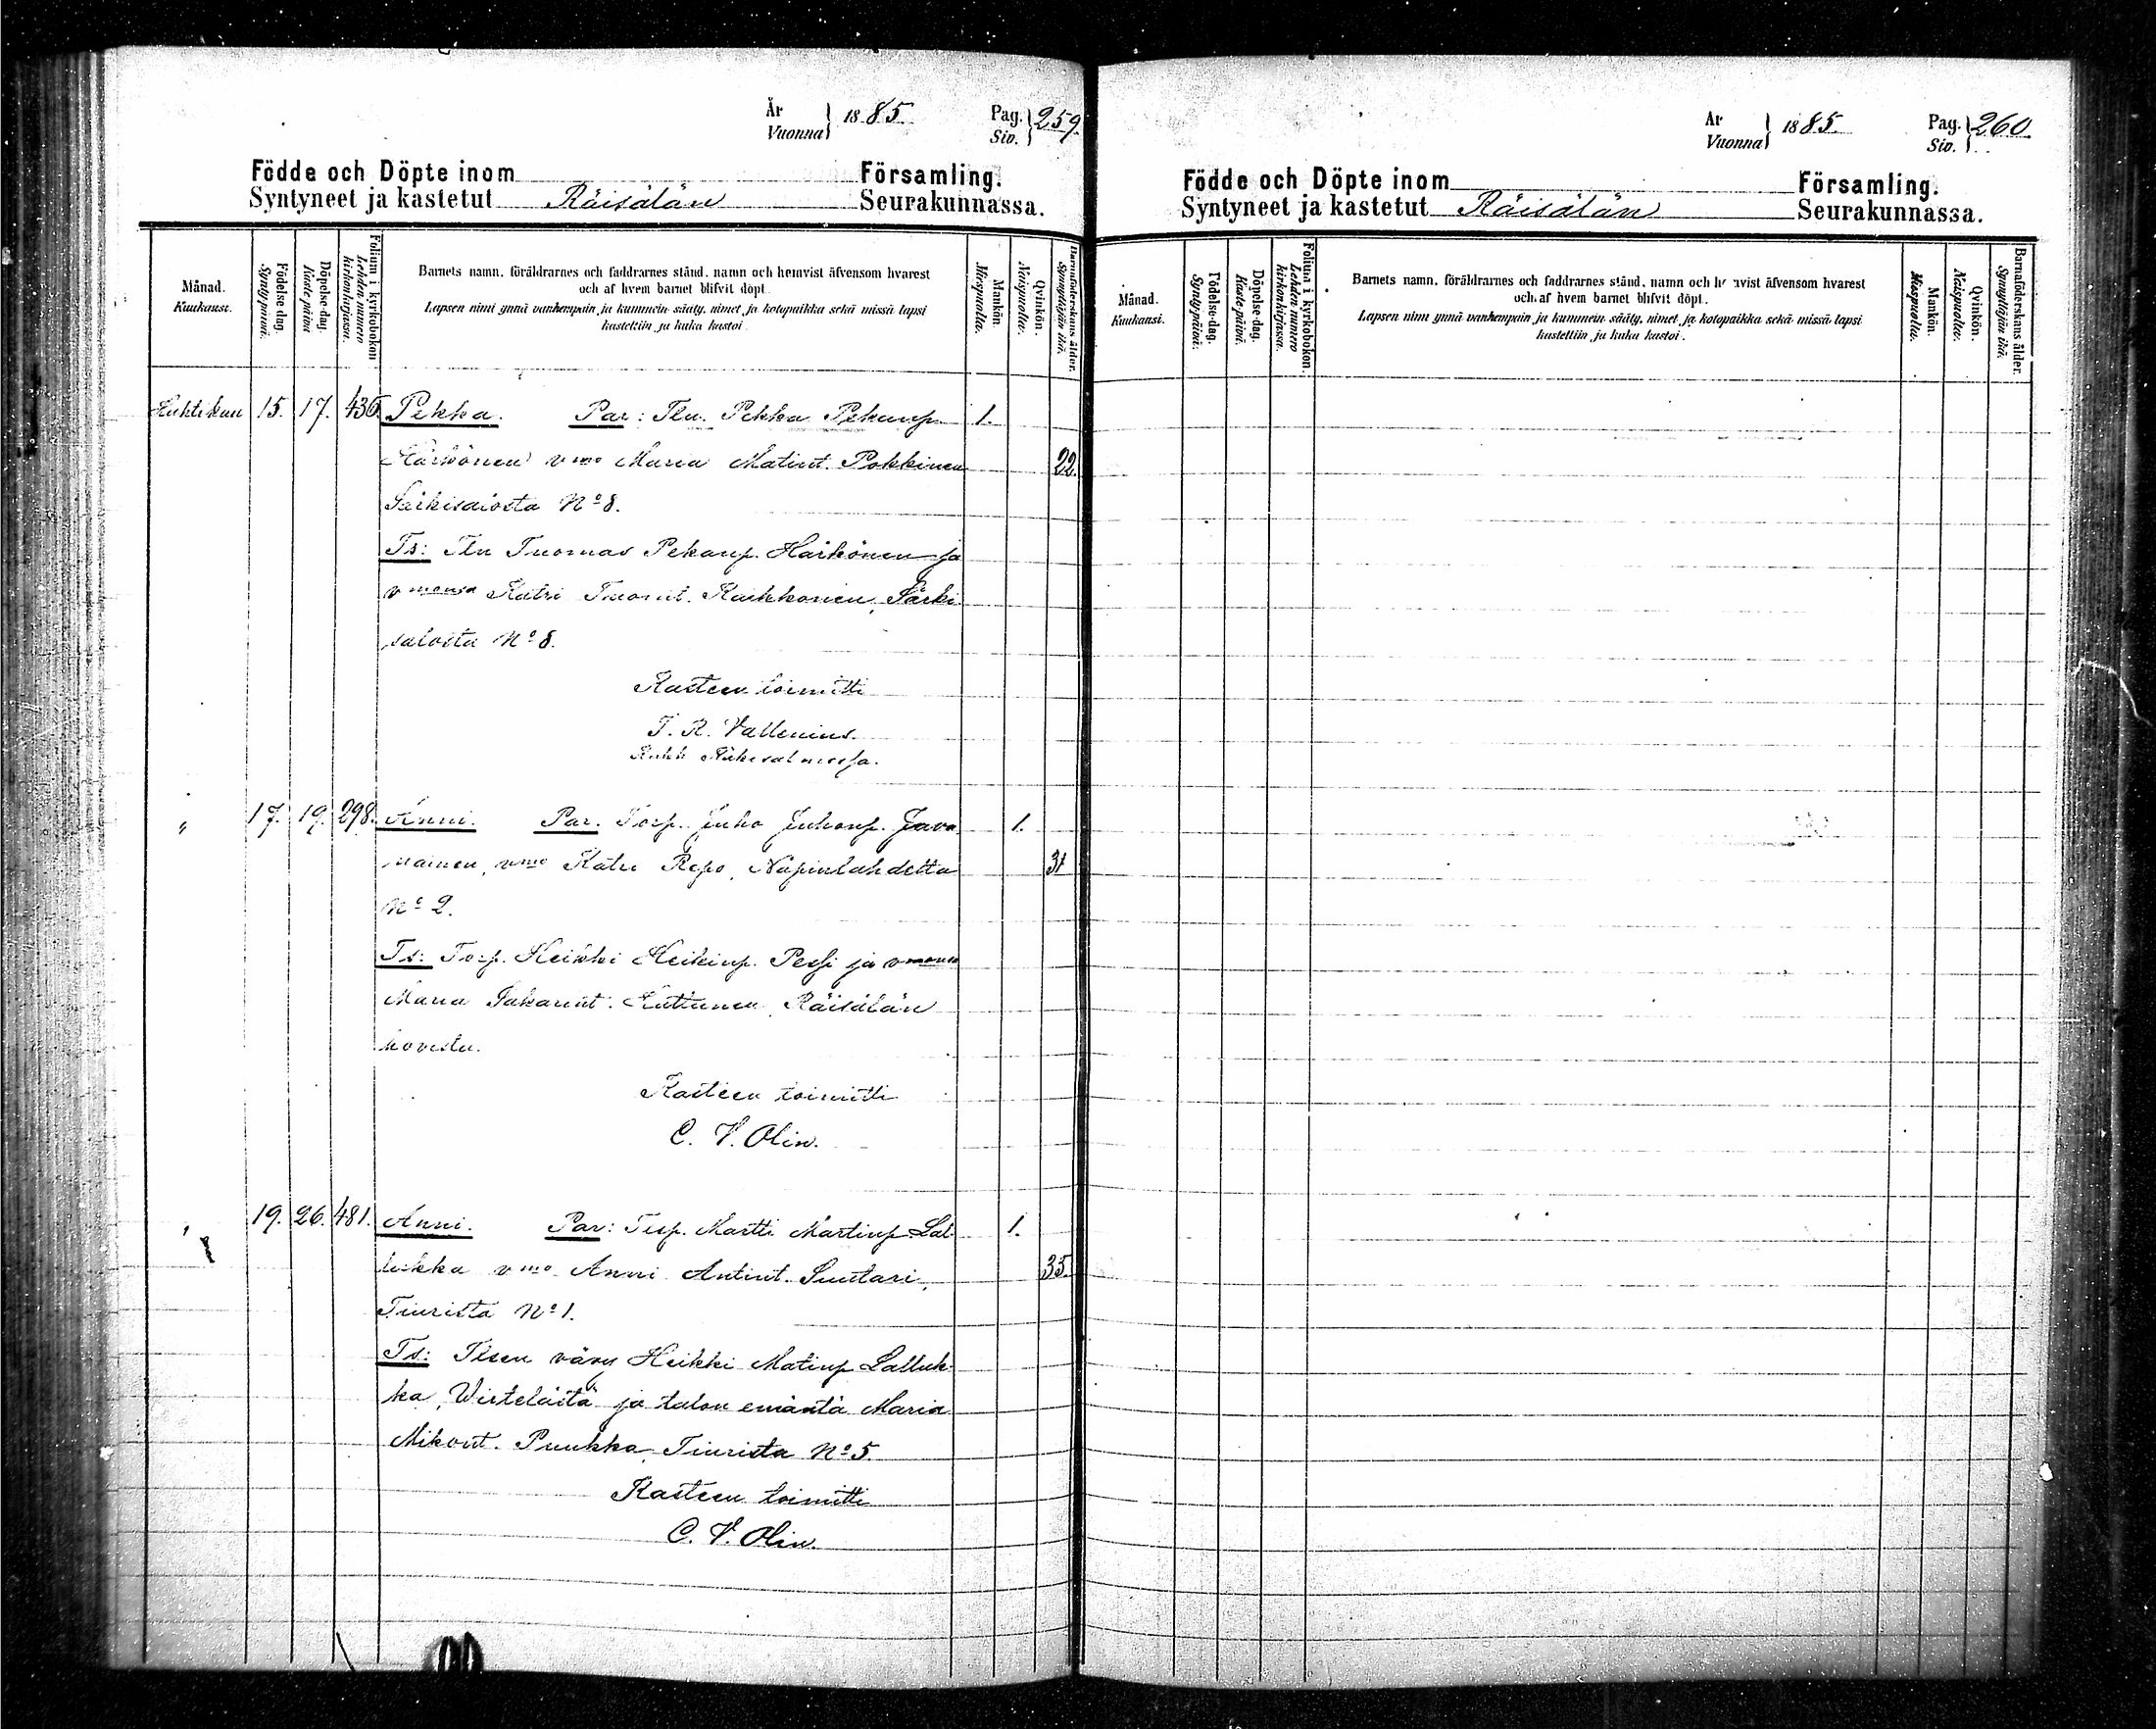 År
Vuonna } 1885.
Pag.
Siv. } 259.
Födde och Döpte inom Församling.
Syntyneet ja kastetut Räisälän Seurakunnassa.
Månad.
Kuukausi.
Födelse-dag.
Syntypäivä.
Döpelse-dag.
Kastepäivä.
Folium i kyrkobokon
Lehden numero
kirkonkirjassa.
Barnets namn, föräldrarnes och faddrarnes stånd, namn och hemvist äfvensom hvarest
och af hvem barnet blifvit döpt.
Lapsen nimi ynnä vanhempain ja kummein sääty, nimet ja kotopaikka sekä missä lapsi
kastettiin ja kuka kastoi.
Mankön.
Miespuolia.
Qvinkön.
Naispuolia.
Barnaföderskans ålder.
Synnyttäjän ikä.
Huhtikuu 15. 17. 436 Pekka. Par: Tln. Pekka Pekanp. 1.
Härkönen vmo Maria Matint. Pokkinen 22.
Särkisalosta No 8.
Ts: Tln Tuomas Pekanp. Härkönen ja
vmonsa Katri Tuomt. Kaikkonen, Särki
salosta No 8.
Kasteen toimitti
J. R. Vallenius.
Käkisalmessa.
" 17. 19. 298. Anni. Par. Torp. Juho Juhonp. Java 1.
nainen, vmo Katri Repo, Näpinlahdelta 31
No 2.
Ts: Torp. Heikki Heikinp. Pessi ja vmonsa
Maria Sakarint. Huttunen, Räisälän
hovista.
Kasteen toimitti
C. V. Olin.
" 19. 26. 481. Anni. Par: Tisp. Martti Martinp Lal 1.
lukka vmo Anni Antint. Suutari, 35.
Tiurista No 1.
Ts: Tlsen vävy Heikki Matinp Lalluk
ka, Wirtelästä ja talon emäntä Maria
Mikont. Puukka, Tiurista No 5.
Kasteen toimitti
C. V. Olin.
År
Vuonna } 1885.
Pag.
Siv. } 260.
Födde och Döpte inom Församling.
Syntyneet ja kastetut Räisälän Seurakunnassa.
Månad.
Kuukausi.
Födelse-dag.
Syntypäivä.
Döpelse-dag.
Kastepäivä.
Folium i kyrkobokon.
Lehden numero
kirkonkirjassa.
Barnets namn, föräldrarnes och faddrarnes stånd, namn och hemvist äfvensom hvarest
och af hvem barnet blifvit döpt.
Lapsen nimi ynnä vanhempain ja kummein sääty, nimet ja kotopaikka sekä missä lapsi
kastettiin ja kuka kastoi.
Mankön.
Miespuolia.
Qvinkön.
Naispuolia.
Barnaföderskans ålder.
Synnyttäjän ikä.